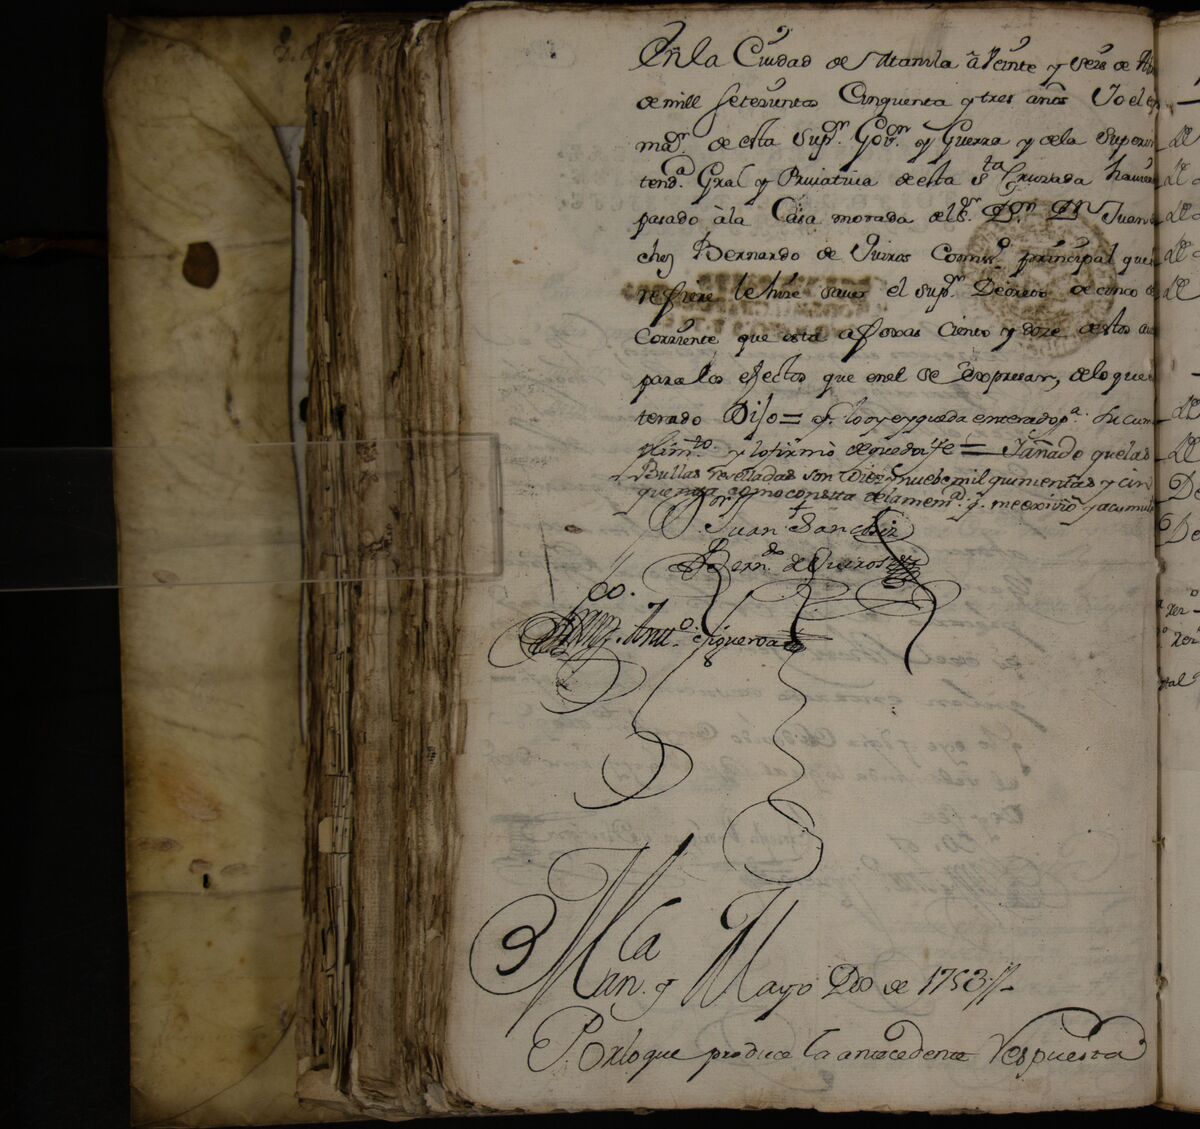 En la Ciudad de Manila à Veinte y seis de Ab
de mill setecientos Cinquenta y tres años Yo el es
maʳ. de esta Supᵒʳ. Govⁿᵒ. y Guerra y dela Superin
tendᵃ. Gral y Privativa de esta Sᵗᵃ Cruzada haviendo
pasado à la Casa morada del Sʳ. Dᵒⁿ Dʳ Juan
chez Bernardo de Quiros Comisᵒ. principal que
refiere le hize saver el Supᵒʳ. Decreto de cinco
Corriente que esta afoxas ciento y doze destos au
para los efectos que enel se expresan, de lo que
terado Dijo = q. lo oye y queda enterado pᵃ. su cum
plimᵗᵒ. y lo firmò de que doi fe = Y añado que las
Bullas reselladas son Diez y nuebe mil quinientas y cin
quenta como consta dela memᵃ. q. me exivio y acumul
Juan Sanchez
Bernᵈᵒ de Quiros
Antᵒ. Figueroa
Manˡᵃ. y Mayo Dos de 1753.
Por lo que produce la antecedente Respuesta